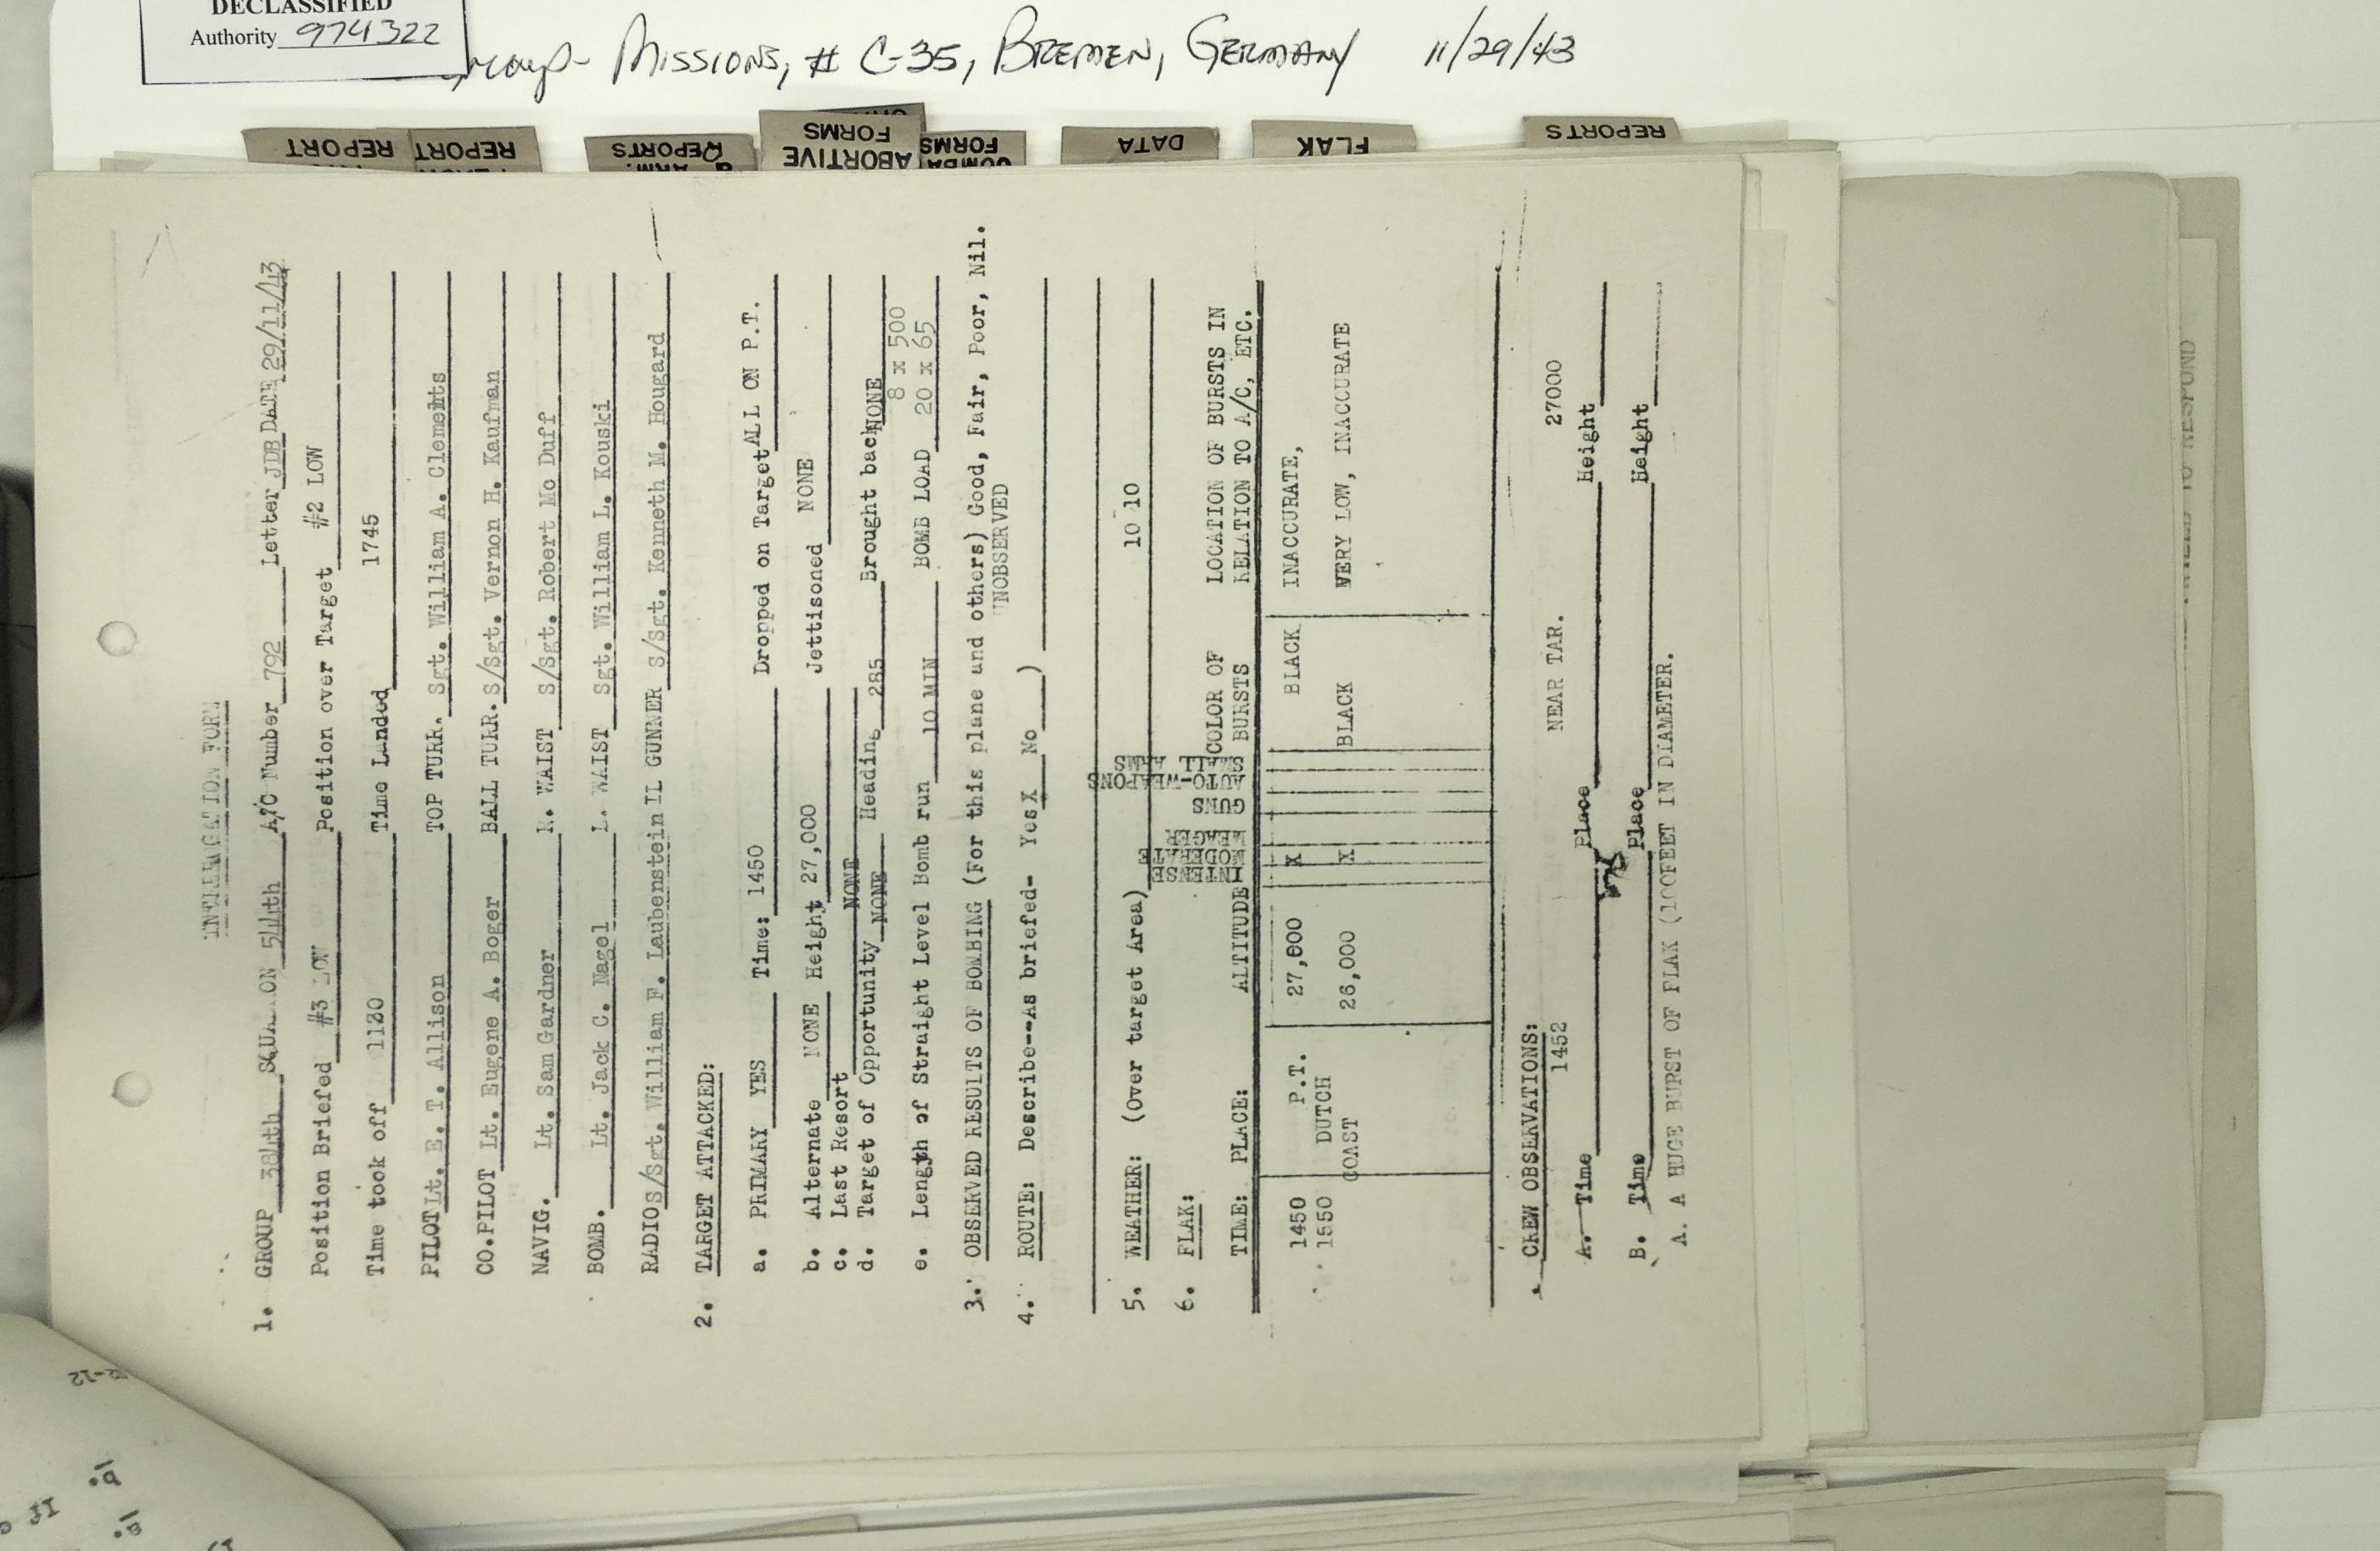 DECLASSIFIED
Authority 974322
Missions, # C-35, BREMEN, GERMANY 11/29/43
REPORT
REPORT
ARM.
REPORTS
ABORTIVE
FORMS
FORMS
DATA
FLAK
REPORTS
INTERROGATION FORM
1. GROUP 384th SQUADRON 544th A/C Number 792 Letter JDB DATE 29/11/43
Position Briefed #3 LOW Position over Target #2 LOW
Time took off 1130 Time Landed 1745
PILOT Lt. E. T. Allison TOP TURR. Sgt. William A. Clements
CO.PILOT Lt. Eugene A. Boger BALL TURR. S/Sgt. Vernon H. Kaufman
NAVIG. Lt. Sam Gardner R. WAIST S/Sgt. Robert Mc Duff
BOMB. Lt. Jack C. Nagel L. WAIST Sgt. William L. Kouski
RADIO S/Sgt. William F. Laubenstein IL GUNNER S/Sgt. Kenneth M. Hougard
2. TARGET ATTACKED:
a. PRIMARY YES Time: 1450 Dropped on Target ALL ON P.T.
b. Alternate NONE Height 27,000 Jettisoned NONE
c. Last Resort NONE
d. Target of Opportunity NONE Heading 285 Brought back NONE
8 x 500
e. Length of Straight Level Bomb run 10 MIN BOMB LOAD 20 x 65
3. OBSERVED RESULTS OF BOMBING (For this plane and others) Good, Fair, Poor, Nil.
UNOBSERVED
4. ROUTE: Describe--As briefed- Yes X No )
5. WEATHER: (Over target Area) 10 10
6. FLAK:
TIME: PLACE: ALTITUDE INTENSE MODERATE MEAGER GUNS AUTO-WEAPONS SMALL ARMS COLOR OF BURSTS LOCATION OF BURSTS IN RELATION TO A/C, ETC.
1450 P.T. 27,000 X BLACK INACCURATE,
1550 DUTCH COAST 26,000 X BLACK VERY LOW, INACCURATE
CREW OBSERVATIONS:
1452 NEAR TAR. 27000
A. Time Place Height
B. Time Place Height
A. A HUGE BURST OF FLAK (100FEET IN DIAMETER.
TO RESPOND